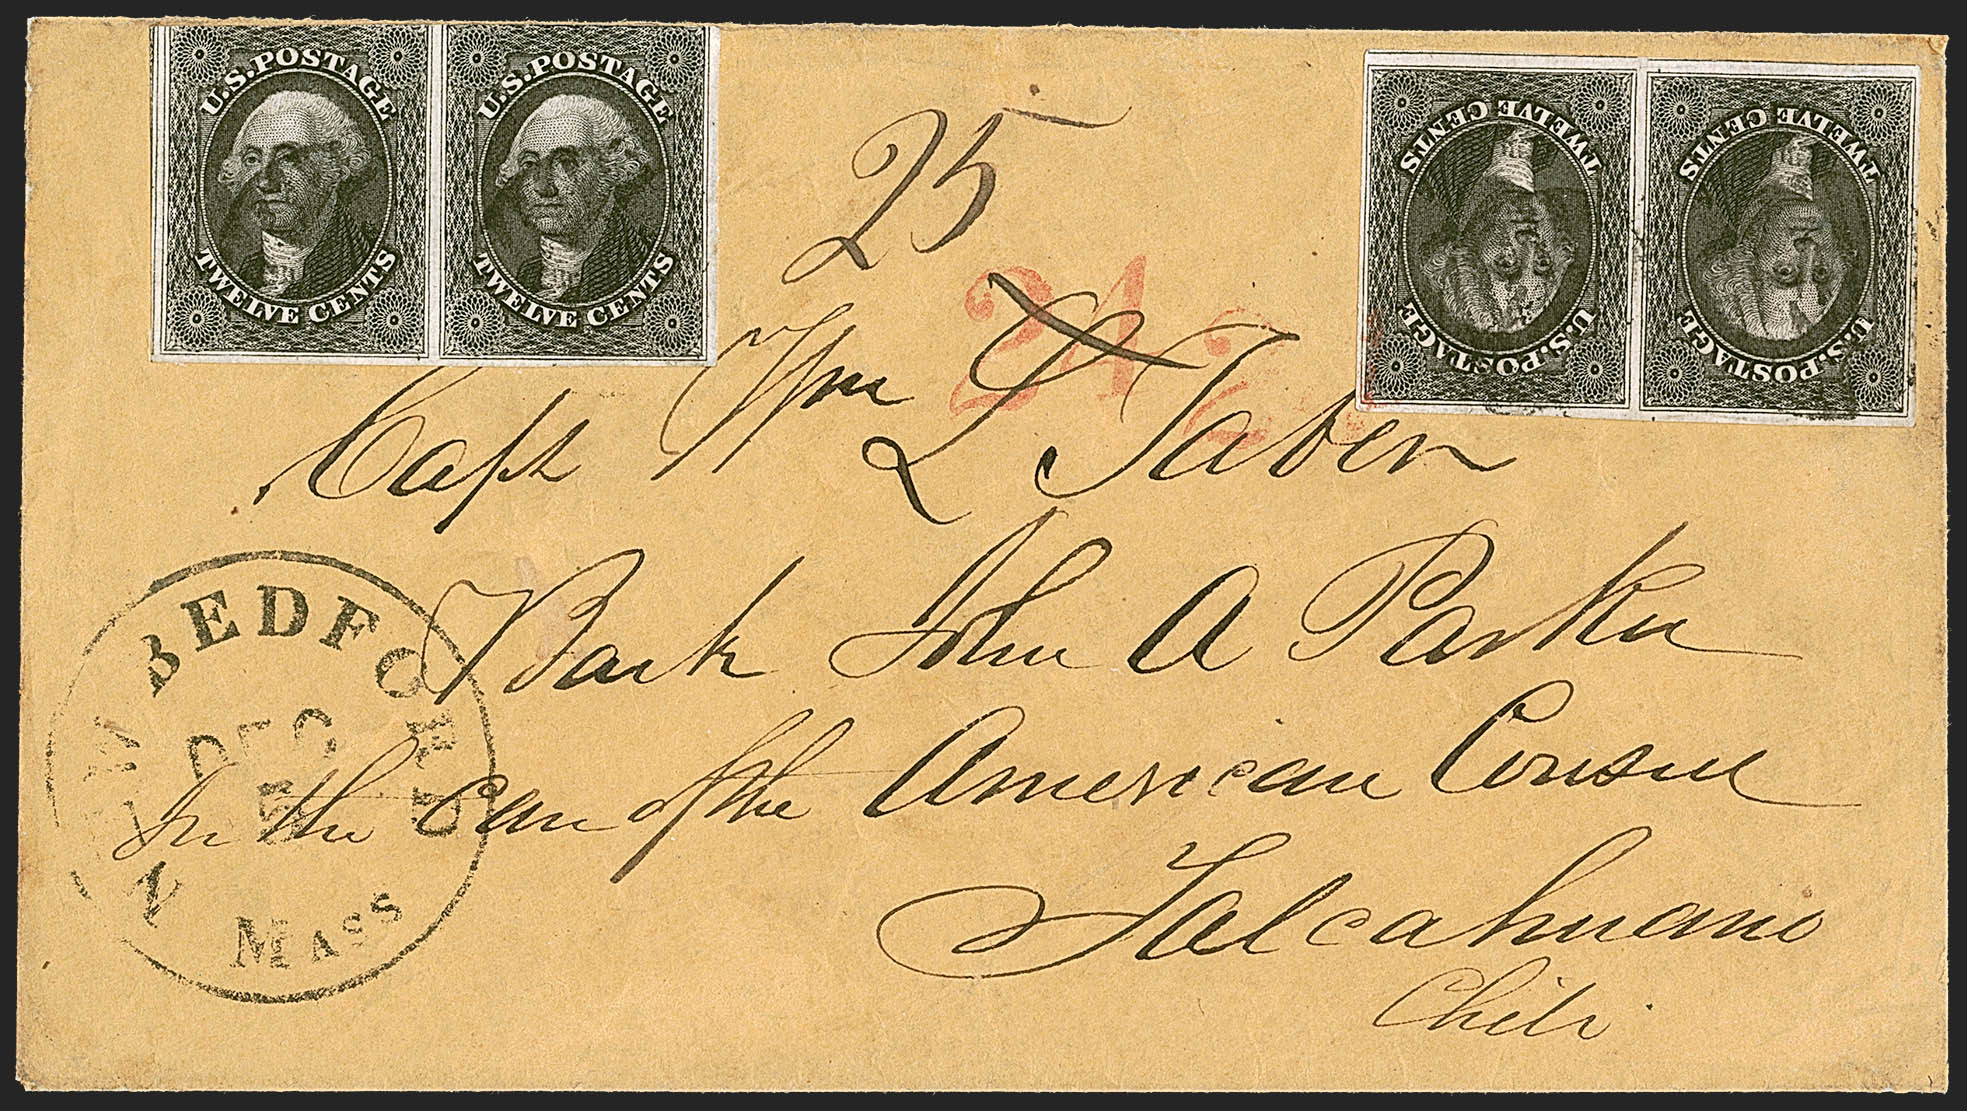 U.S. POSTAGE
TWELVE CENTS
U.S. POSTAGE
TWELVE CENTS
U.S. POSTAGE
TWELVE CENTS
U.S. POSTAGE
TWELVE CENTS
25
24
2
Capt Wm L Taber
Bark John A Parker
In the care of the American Consul
Talcahuano
Chili
NEW BEDFORD
DEC
5
MASS